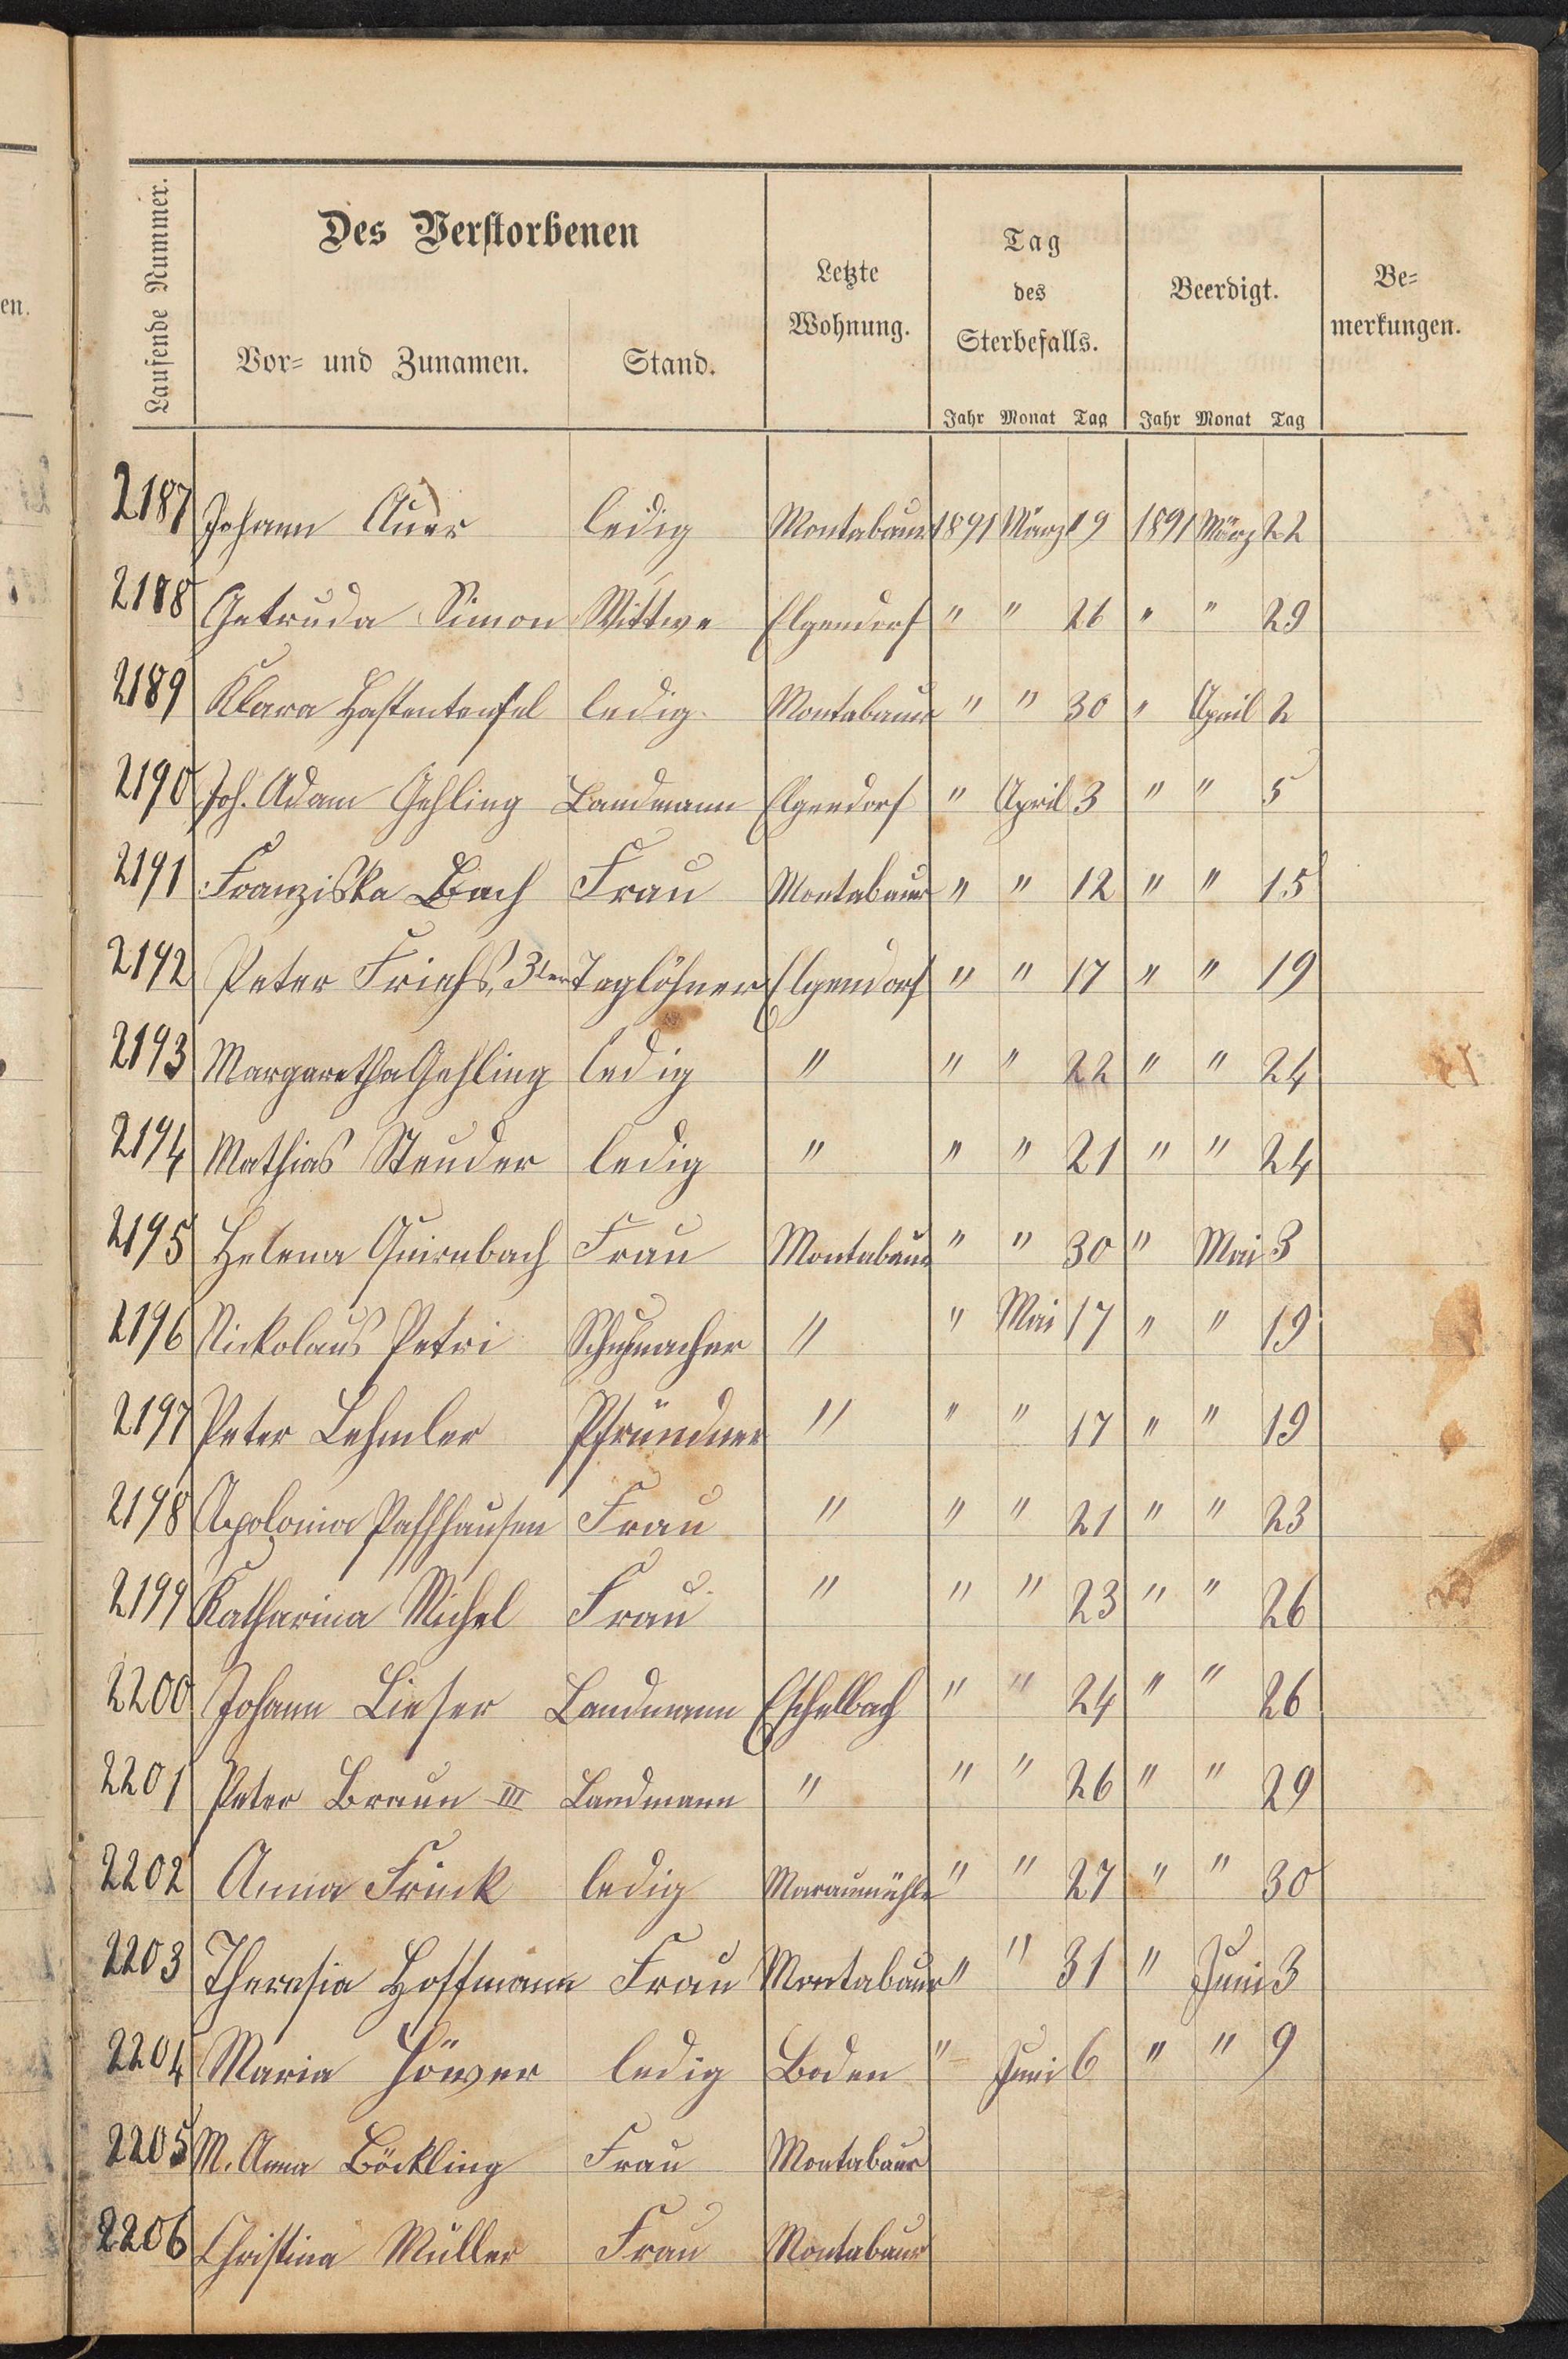 en.
Laufende Nummer.
Des Verstorbenen
Vor= und Zunamen.
Stand.
Letzte
Wohnung.
Tag
des
Sterbefalls.
Beerdigt.
Be=
merkungen.
Jahr Monat Tag Jahr Monat Tag
2187 Johann Auer ledig Montabaur 1891 März 19 1891 März 22
2188 Getruda Simon Wittwe Elgendorf " " 26 " " 29
2189 Klara Hastenteufel ledig Montabaur " " 30 " April 2
2190 Joh. Adam Gehling Landmann Elgendorf " April 3 " " 5
2191 Franziska Bach Frau Montabaur " " 12 " " 15
2192 Peter 3ter Taglöhner Elgendorf " " 17 " " 19
2193 Margaretha Gehling ledig " " " 22 " " 24
2194 Mathias Steuder ledig " " " 21 " " 24
2195 Helena Quirnbach Frau Montabaur " " 30 " Mai 3
2196 Nickolaus Petri Schuhmacher " " Mai 17 " " 19
2197 Peter Lehmler Pfründner " " " 17 " " 19
2198 Apolonia Paffhausen Frau " " " 21 " " 23
2199 Katharina Michel Frau " " " 23 " " 26
2200 Johann Lieser Landmann Eschelbach " " 24 " " 26
2201 Peter Braun III Landmann " " " 26 " " 29
2202 Anna Frink ledig " " 27 " " 30
2203 Theresia Hoffmann Frau Montabaur " " 31 " Juni 3
2204 Maria Höwer ledig Boden " Juni 6 " " 9
2205 M. Anna Böckling Frau Montabaur
2206 Christina Müller Frau Montabaur